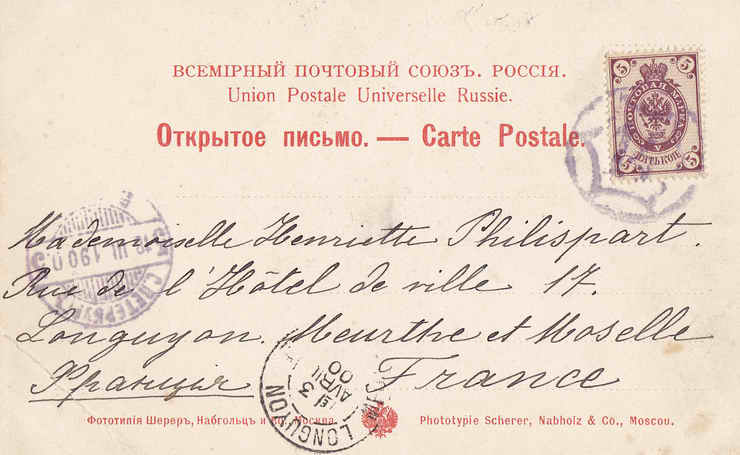 ВСЕМІРНЫЙ ПОЧТОВЫЙ СОЮЗЪ. РОССІЯ.
Union Postale Universelle Russie.
Открытое письмо. — Carte Postale.
5 5
ПОЧТОВАЯ МАРКА
5 ПЯТЬ КОП. 5
Mademoiselle Henriette Philispart.
Rue de l'Hôtel de ville 17.
Longuyon. Meurthe et Moselle
Франція France
С.ПЕТЕРБУРГ
1900
LONGUYON
3
AVRIL
00
Фототипія Шереръ, Набгольцъ и Москва.
Phototypie Scherer, Nabholz & Co., Moscou.